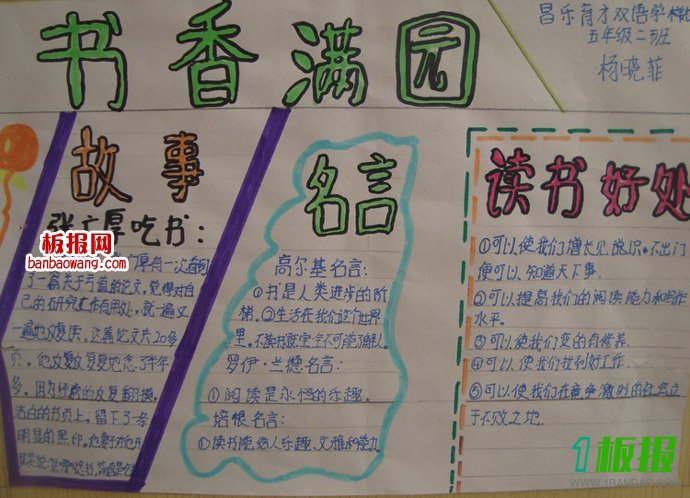 书香满园
昌乐育才双语学校
五年级二班
杨晓菲
故事
张广厚吃书:
板报网
banbaowang.com
厚有一次看到
了一篇关于亏值的论文,觉得对自
己的研究工作有用处,就一遍又
一遍地反复读。这篇论文共20多
页,他反反复复地念了半年
多。因为经常的反复翻摸,
洁白的书页上,留下了一条
明显的黑印。他妻子对他开
名言
高尔基名言:
①书是人类进步的阶
梯。②生活在我们这个世界
里,不读书就完全不可能了解人。
罗伊·兰德名言:
①阅读是永恒的乐趣。
培根名言:
①读书能给人乐趣、文雅和能力
读书好处
①可以使我们增长见识。不出门
便可以知道天下事。
②可以提高我们的阅读能力和写作
水平。
③可以使我们变的有修养。
④可以使我们找到好工作。
⑤可以使我们在竞争激烈的社会立
于不败之地.
1板报
WWW.1BANBAO.COM